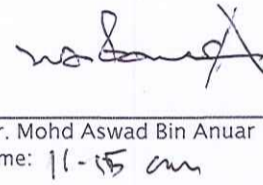 r. Mohd Aswad Bin Anuar
me: 11-15 am